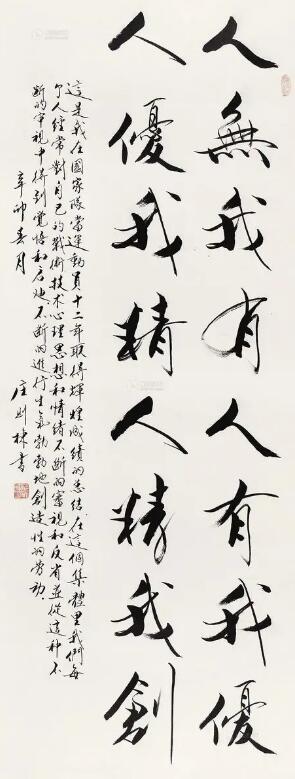 人無我有人有我優
人優我精人精我創
這是我在國家隊當運動員十二年取得輝煌成績的总结.在這個集體里我們每
个人經常對自己的戰術技术心理思想和情绪不斷的審視和反省並從這种不
斷的审視中得到覺悟和启廸.不斷的進行生氣勃勃地創造性的劳动.
辛卯春月
庄则棟書